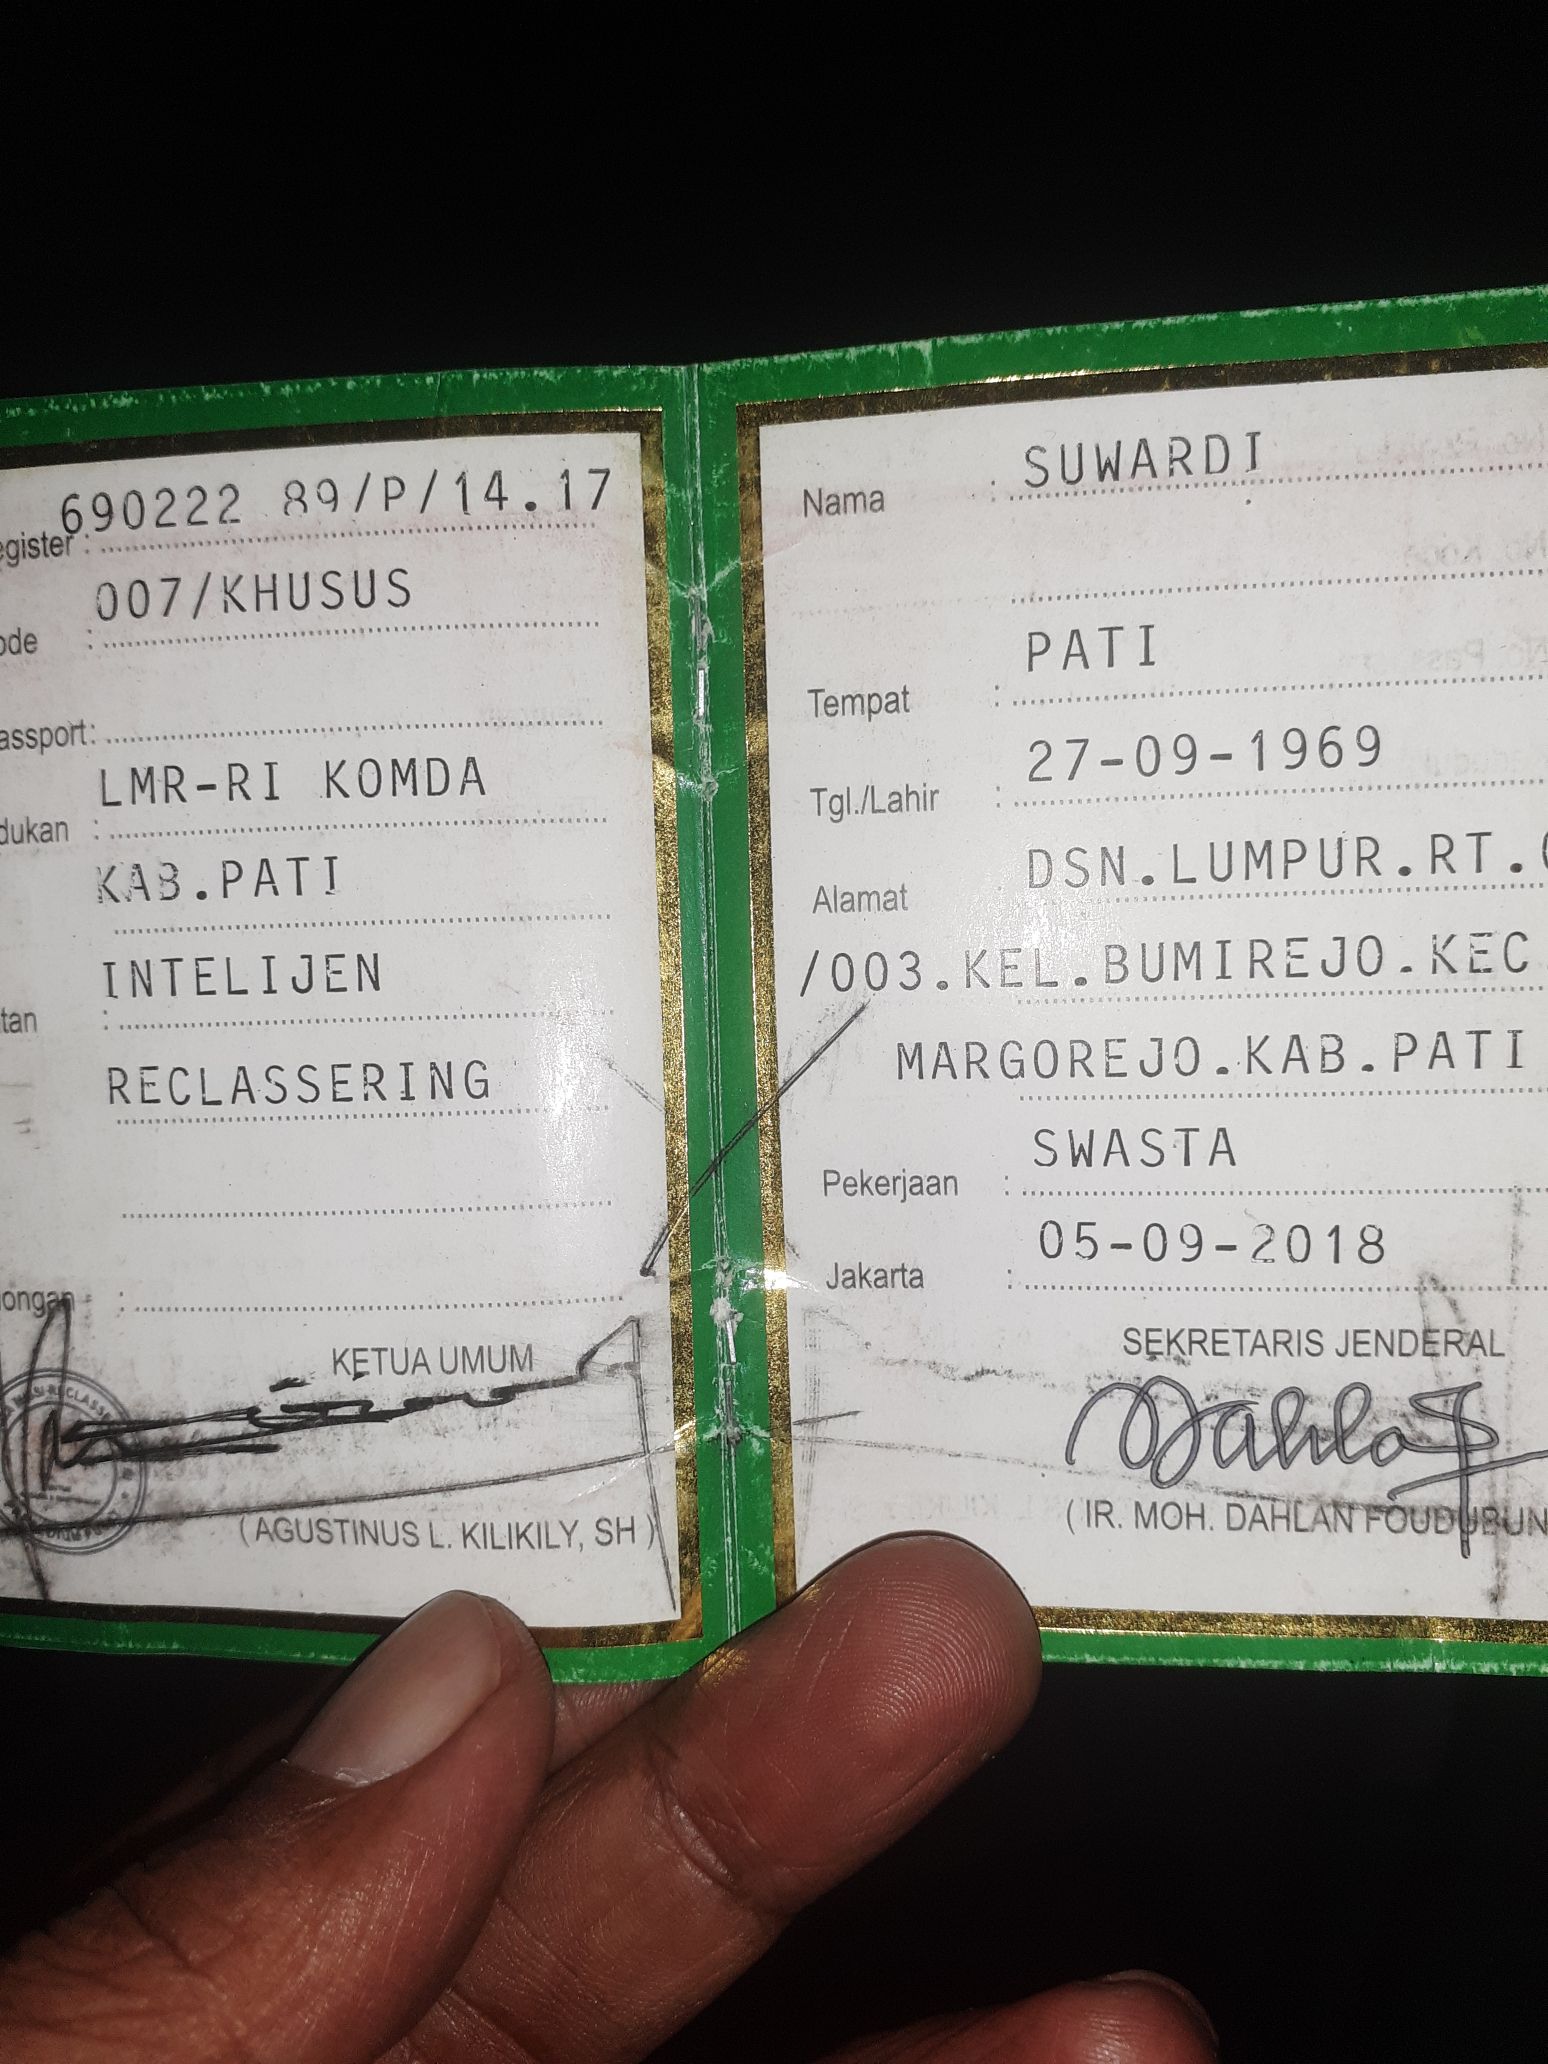 690222 89/P/14.17
egister :
007/KHUSUS
ode :
assport:
LMR-RI KOMDA
dukan :
KAB.PATI
INTELIJEN
tan :
RECLASSERING
ongan :
KETUA UMUM
(AGUSTINUS L. KILIKILY, SH)
Nama : SUWARDI
Tempat : PATI
Tgl./Lahir : 27-09-1969
Alamat : DSN.LUMPUR.RT.
/003.KEL.BUMIREJO.KEC
MARGOREJO.KAB.PATI
Pekerjaan : SWASTA
Jakarta : 05-09-2018
SEKRETARIS JENDERAL
Dahla
(IR. MOH. DAHLAN FOUDUBUN